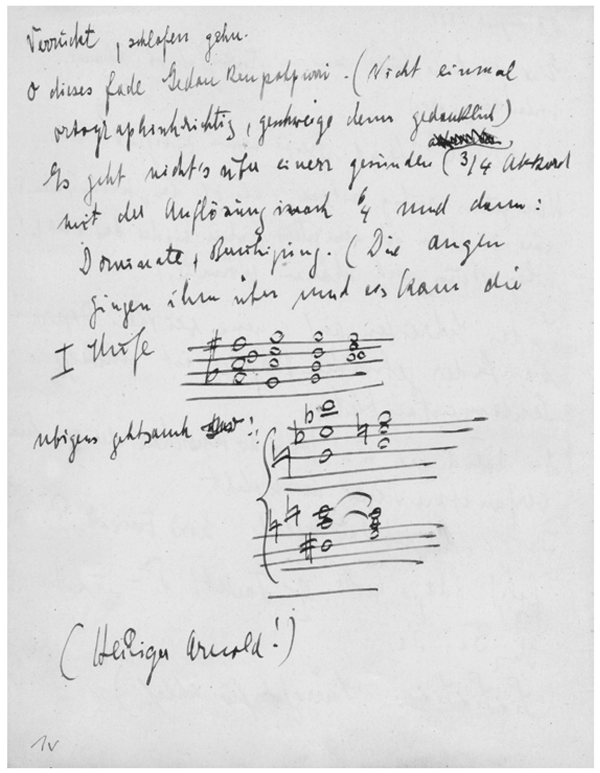 Verrückt, schlafen gehn.
O dieses fade Gedankenpotpurri. (Nicht einmal
ortographischrichtig, geschweige denn gedanklich)
Es geht nicht's über einen gesunden (3/4 Akkord
mit der Auflösung nach 6/4 und dann:
Dominante, Beruhigung. (Die augen
gingen ihm über und es kam die
I Stufe
übrigens geht's auch so!:
(Heiliger Arnold!)
1v